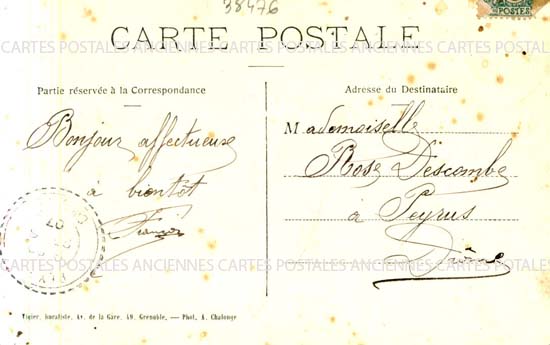 38476
POSTES
CARTE POSTALE
CARTES POSTALES ANCIENNES CARTES POSTALES ANCIENNES CARTES POSTALES
Partie réservée à la Correspondance
Bonjour affectueuse
à bientot
François
Adresse du Destinataire
Mademoiselle
Rose Descombe
à Peyrus
Drôme
CARTES POSTALES ANCIENNES CARTES POSTALES ANCIENNES CARTES POSTALES
Vigier, buraliste, Av. de la Gare, 49, Grenoble, — Phot. A. Chalonge